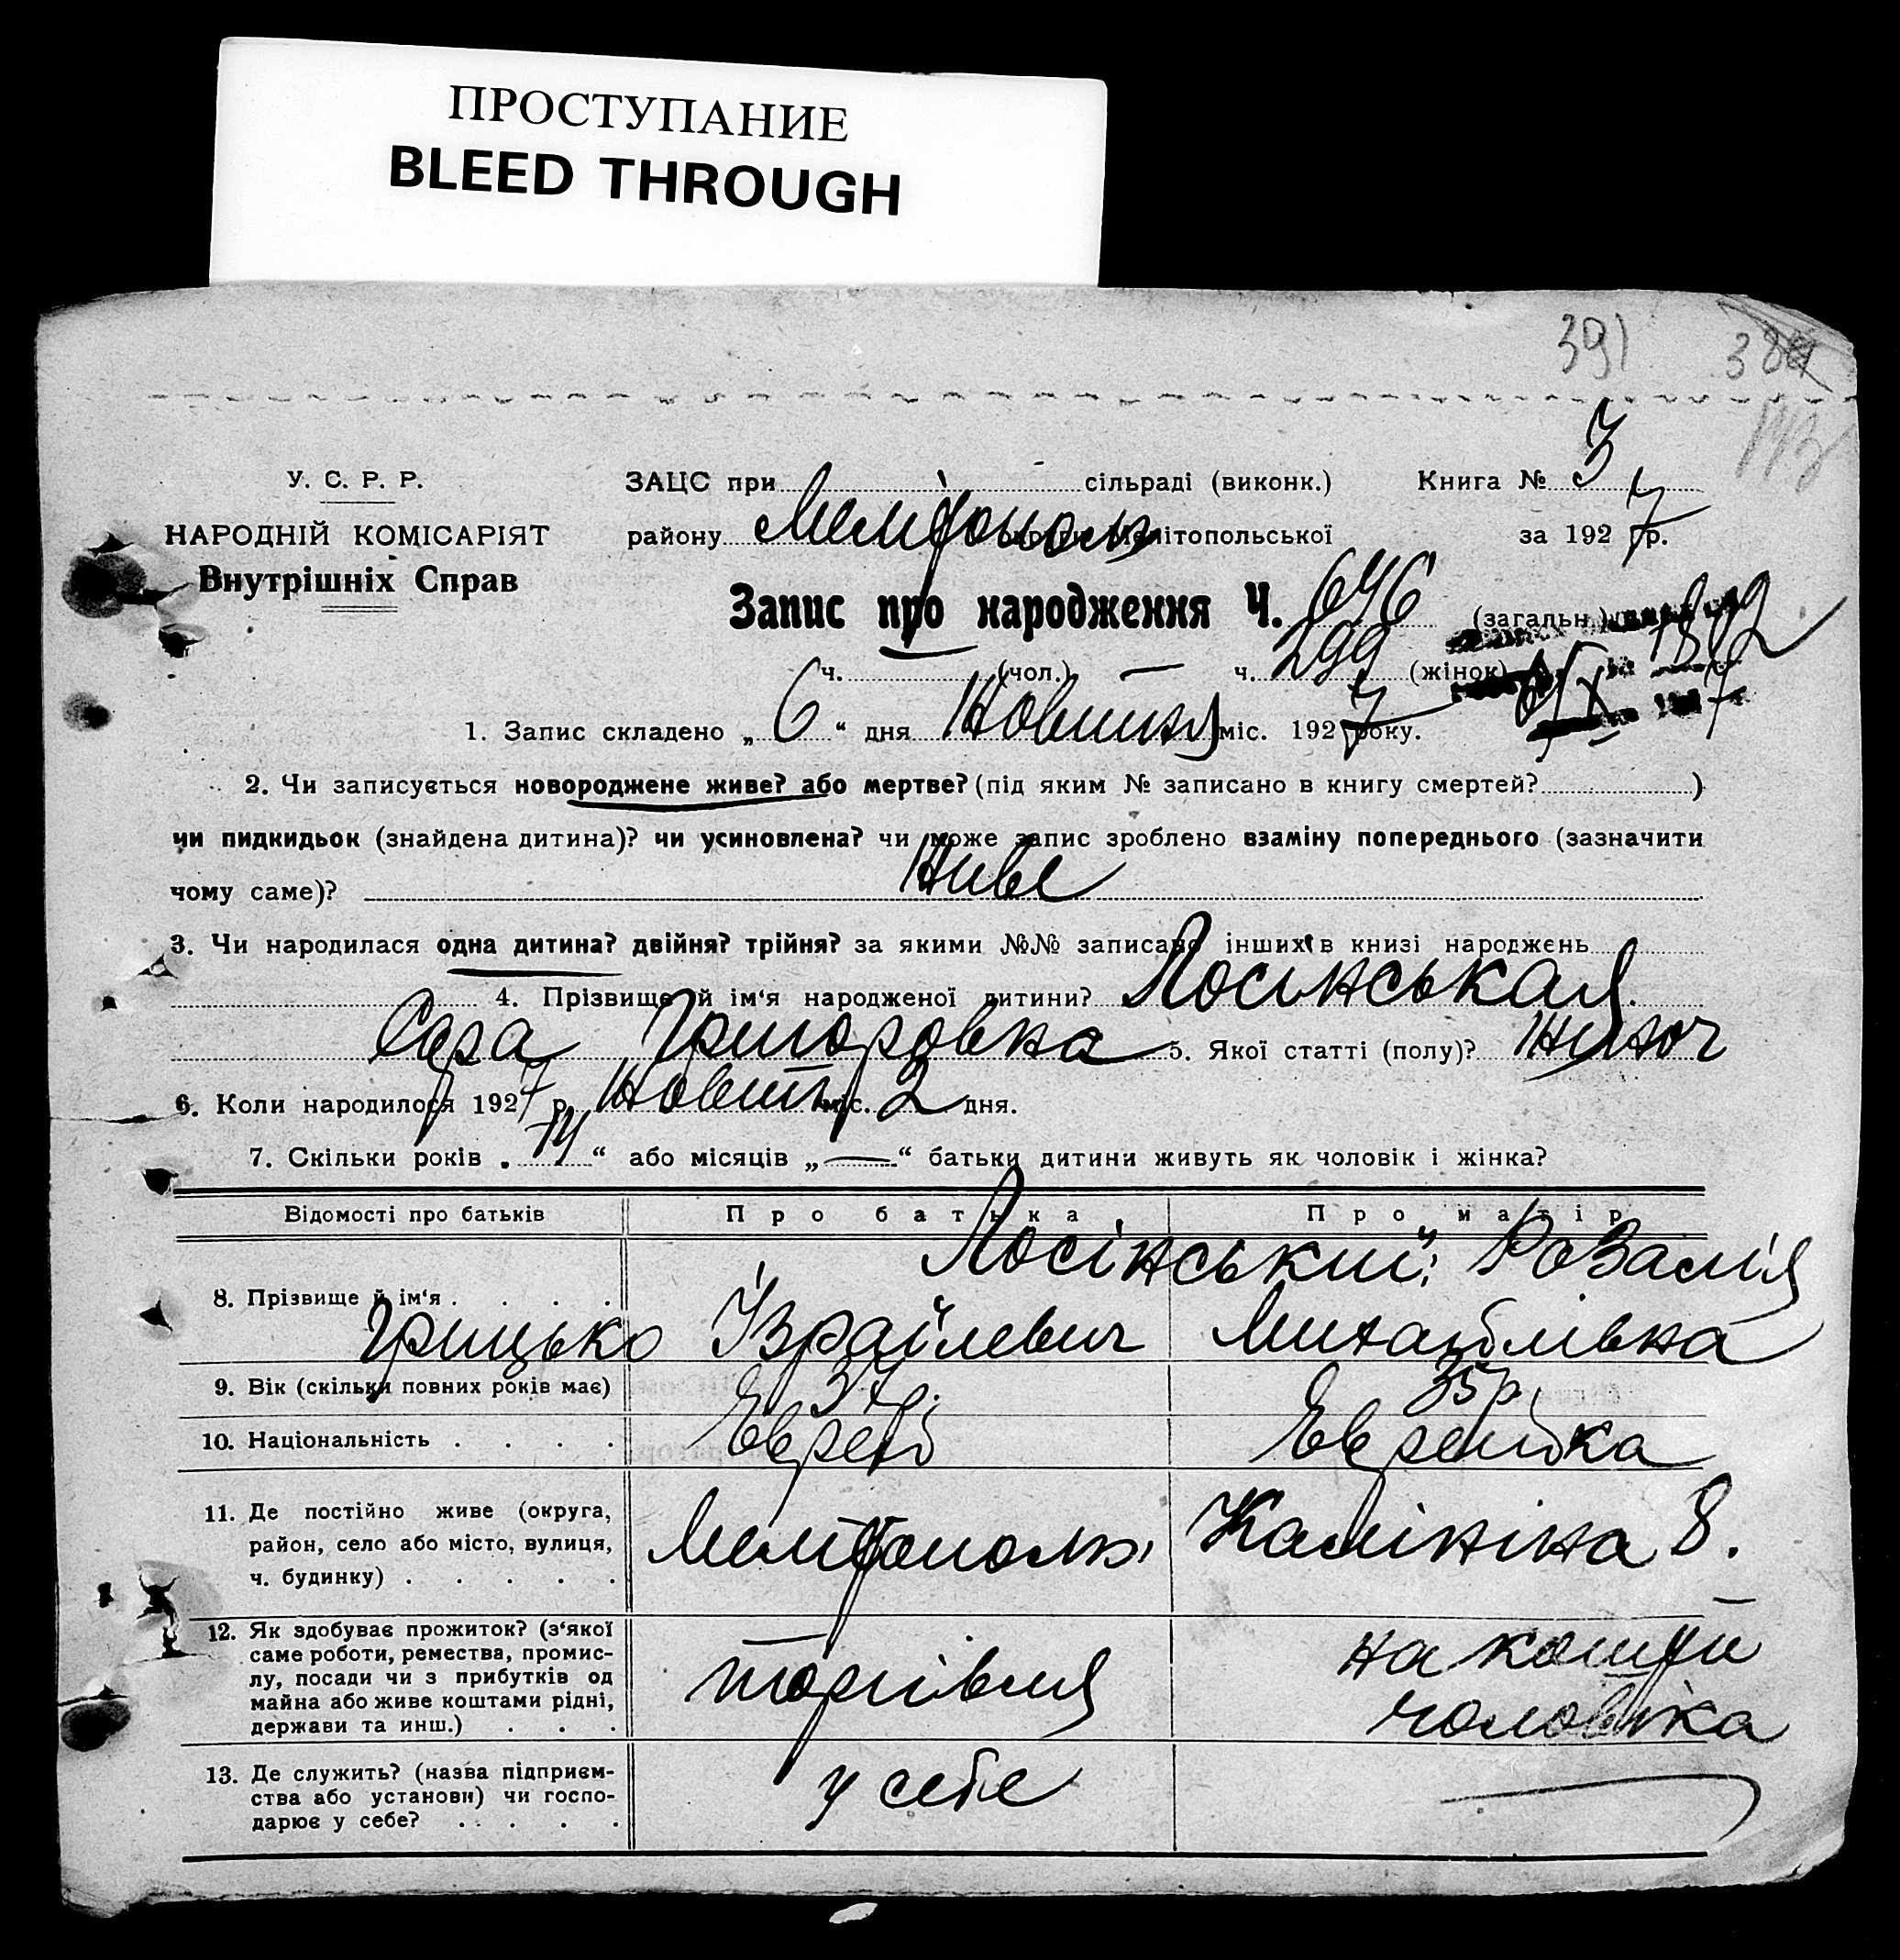 ПРОСТУПАНИЕ
BLEED THROUGH
391 38
У. С. Р. Р. ЗАЦС при сільраді (виконк.) Книга № 3
НАРОДНІЙ КОМІСАРІЯТ району Мелітополь Мелітопольської за 1927 р.
Внутрішніх Справ
Запис про народження Ч. 646 (загальн.)
ч. (чол.) — ч. 299 (жінок)
1. Запис складено „ 6 “ дня Новитня міс. 1927 року.
2. Чи записується новороджене живе? або мертве? (під яким № записано в книгу смертей? )
чи пидкидьок (знайдена дитина)? чи усиновлена? чи може запис зроблено взаміну попереднього (зазначити
чому саме)? Живе
3. Чи народилася одна дитина? двійня? трійня? за якими №№ записано інших в книзі народжень
4. Прізвище й ім‘я народженої дитини? Лосинськая
Сара Григоровна 5. Якої статті (полу)? жиноч
6. Коли народилося 1927 р. міс. 2 дня.
7. Скільки років „ “ або місяців „ — “ батьки дитини живуть як чоловік і жінка?
Відомості про батьків Про батька Про матір
8. Прізвище й ім‘я . . . . Лосінський; Розалія
Грицько Ізраілевич Михайлівна
9. Вік (скільки повних років має) 37 р. 35 р.
10. Національність . . . . Еврей Еврейка
11. Де постійно живе (округа,
район, село або місто, вулиця,
ч. будинку) . . . . . Мелітополь, Калініна 8.
12. Як здобуває прожиток? (з‘якої
саме роботи, ремества, промис-
лу, посади чи з прибутків од
майна або живе коштами рідні,
держави та инш.) . . . торгівля на кошти
чоловіка
13. Де служить? (назва підприєм-
ства або установи) чи госпо-
дарює у себе? . . . . у себе